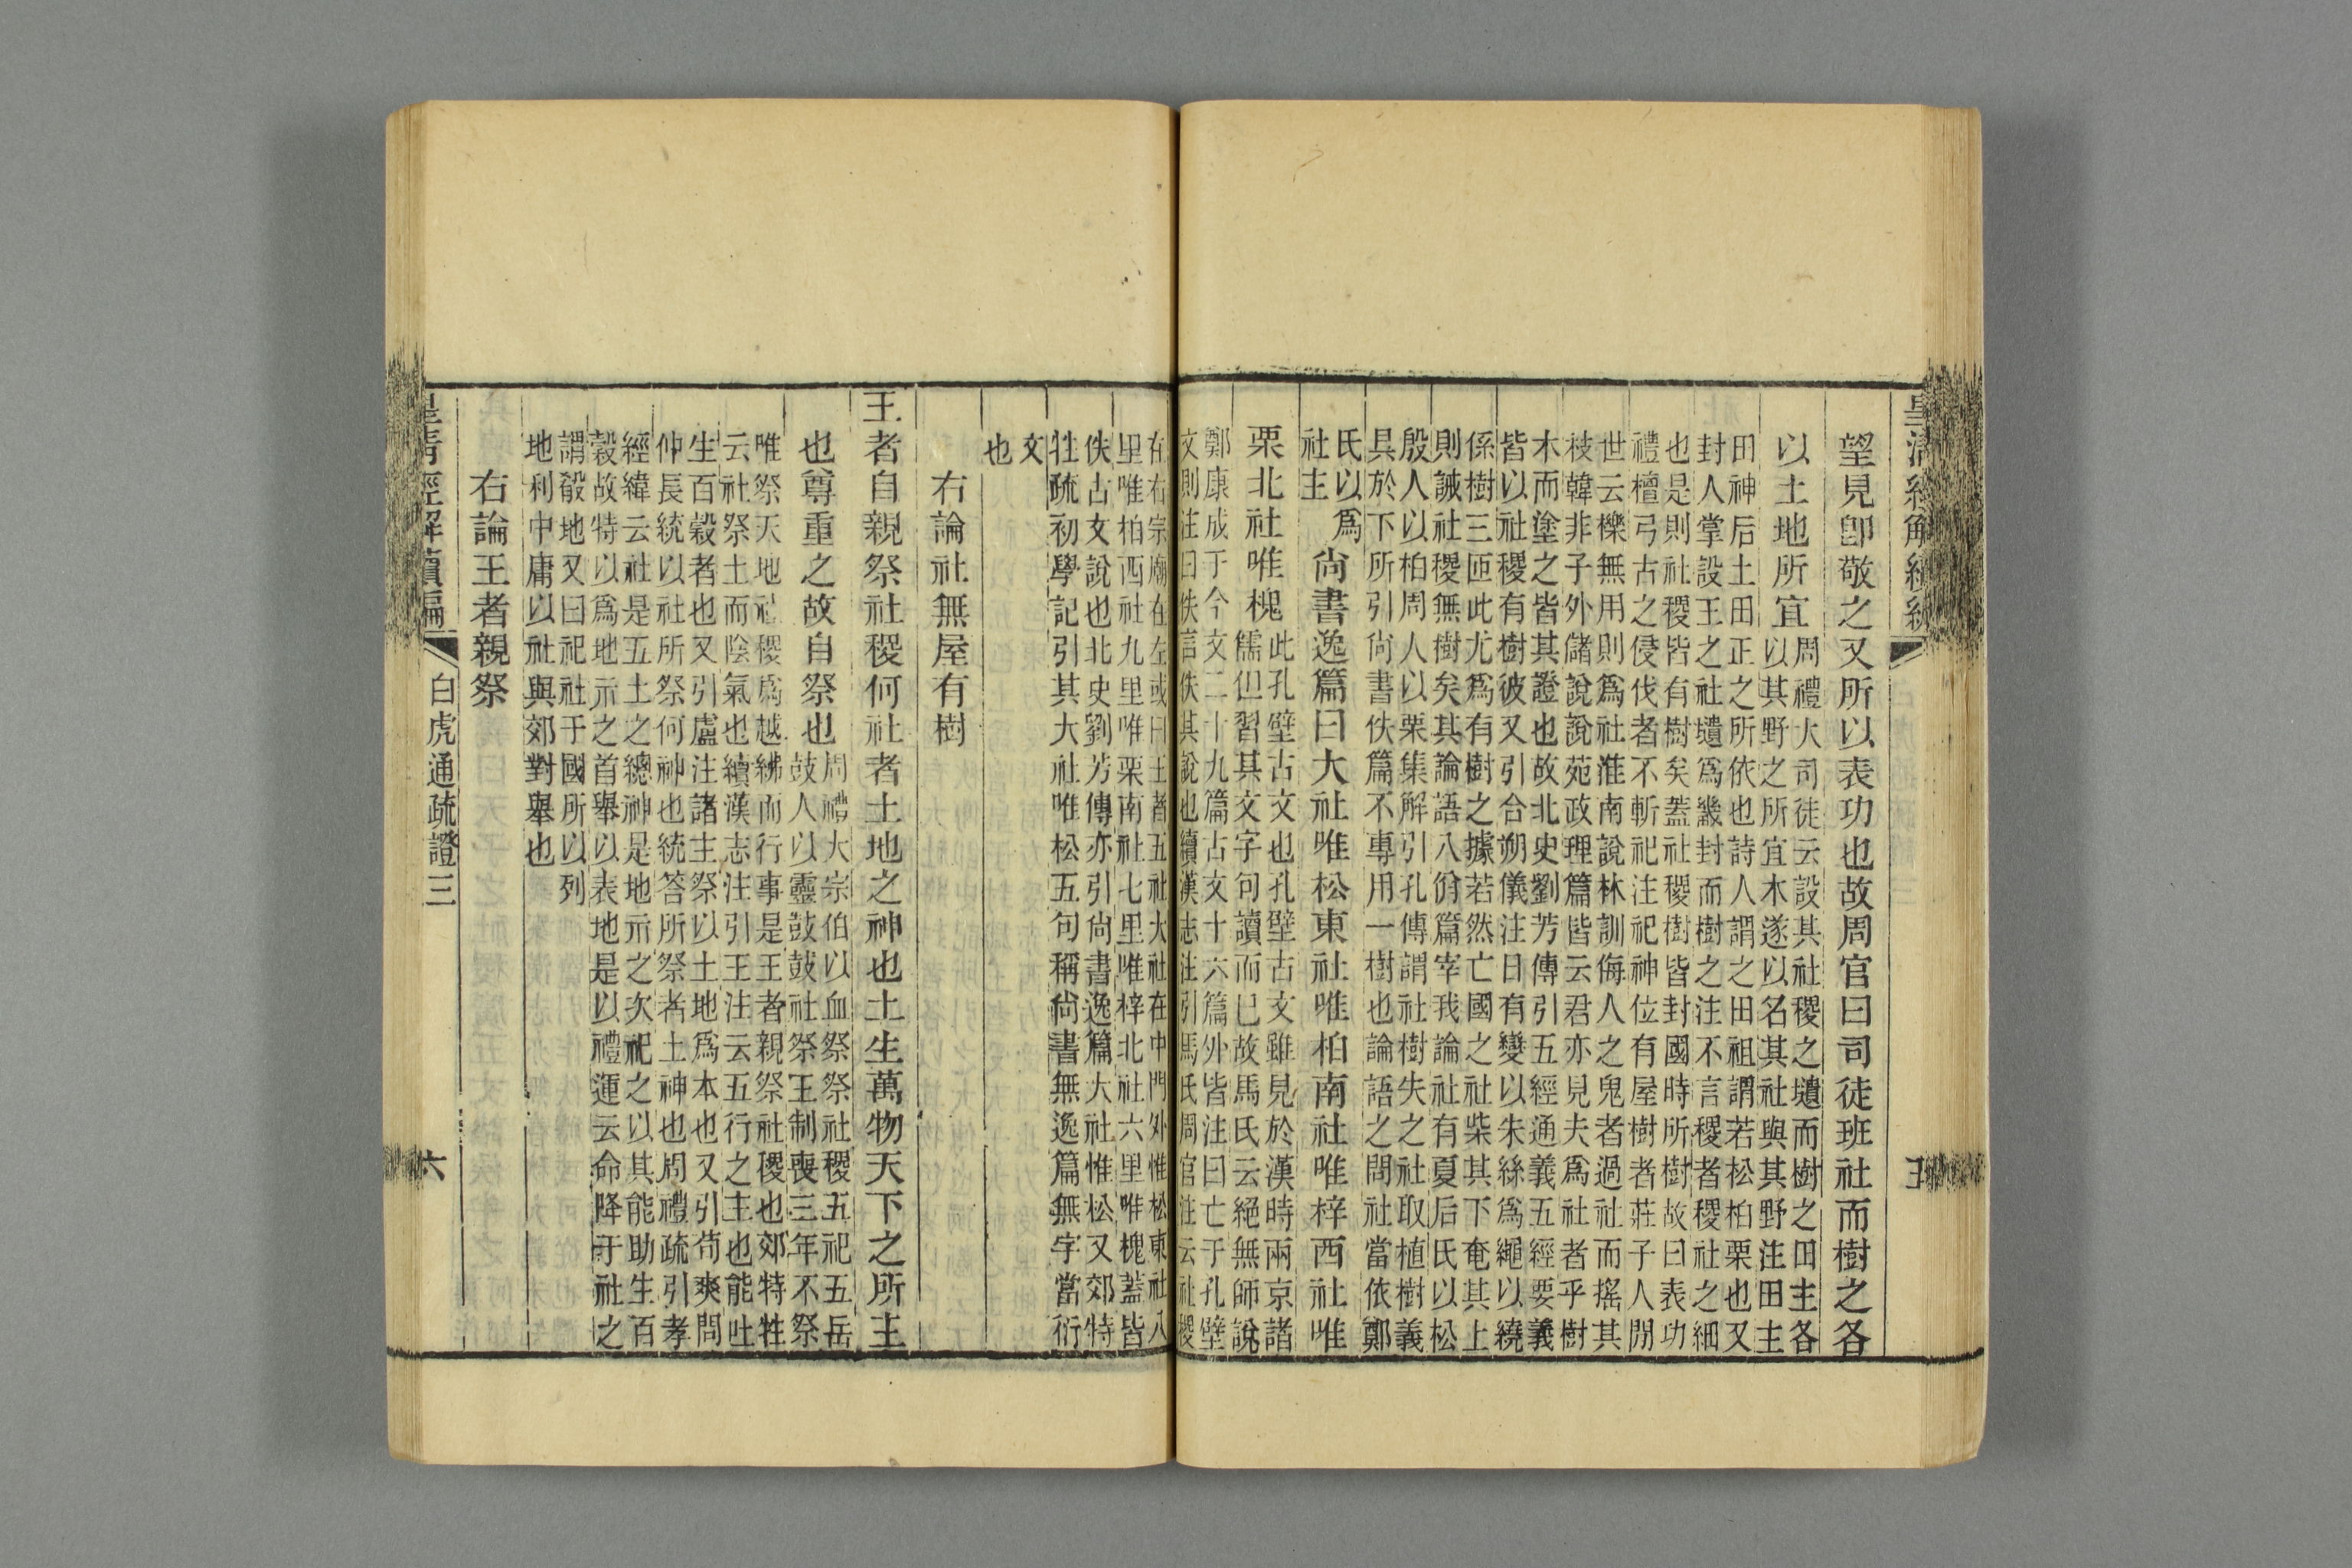 望見卽敬之又所以表功也故周官曰司徒班社而樹之各
以土地所宜
周禮大司徒云設其社稷之壝而樹之田主各
以其野之所宜木遂以名其社與其野注田主
田神后土田正之所依也詩人謂之田祖謂若松柏栗也又
封人掌設王之社壝爲畿封而樹之注不言稷者稷社之細
也是則社稷皆有樹矣蓋社稷樹皆封國時所樹故曰表功
禮檀弓古之侵伐者不斬祀注祀神位有屋樹者莊子人閒
世云櫟無用則爲社淮南說林訓侮人之鬼者過社而搖其
枝韓非子外儲說說苑政理篇皆云君亦見夫爲社者乎樹
木而塗之皆其證也故北史劉芳傳引五經通義五經要義
皆以社稷有樹彼又引合朔儀注日有變以朱絲爲繩以繞
係樹三匝此尤爲有樹之據若然亡國之社柴其下奄其上
則誡社稷無樹矣其論語八佾篇宰我論社有夏后氏以松
殷人以柏周人以栗集解引孔傳謂社樹失之社取植樹義
具於下所引尙書佚篇不專用一樹也論語之問社當依鄭
氏以爲
社主
尙書逸篇曰大社唯松東社唯柏南社唯梓西社唯
栗北社唯槐
此孔壁古文也孔壁古文雖見於漢時兩京諸
儒但習其文字句讀而已故馬氏云絕無師說
鄭康成于今文二十九篇古文十六篇外皆注曰亡于孔壁
文則注曰佚言佚其說也續漢志注引馬氏周官注云社稷
在右宗廟在左或曰王者五社大社在中門外惟松東社八
里唯柏西社九里唯栗南社七里唯梓北社六里唯槐蓋皆
佚古文說也北史劉芳傳亦引尙書逸篇大社惟松又郊特
牲疏初學記引其大社唯松五句稱尙書無逸篇無字當衍
文
也
右論社無屋有樹
王者自親祭社稷何社者土地之神也土生萬物天下之所主
也尊重之故自祭也
周禮大宗伯以血祭祭社稷五祀五岳
鼓人以靈鼓鼓社祭王制喪三年不祭
唯祭天地社稷爲越紼而行事是王者親祭社稷也郊特牲
云社祭土而陰氣也續漢志注引王注云五行之主也能吐
生百穀者也又引盧注諸主祭以土地爲本也又引荀爽問
仲長統以社所祭何神也統答所祭者土神也周禮疏引孝
經緯云社是五土之總神是地示之次祀之以其能助生百
穀故特以爲地示之首舉以表地是以禮運云命降于社之
謂殽地又曰祀社于國所以列
地利中庸以社與郊對舉也
右論王者親祭
皇淸經解續編
白虎通疏證三
六